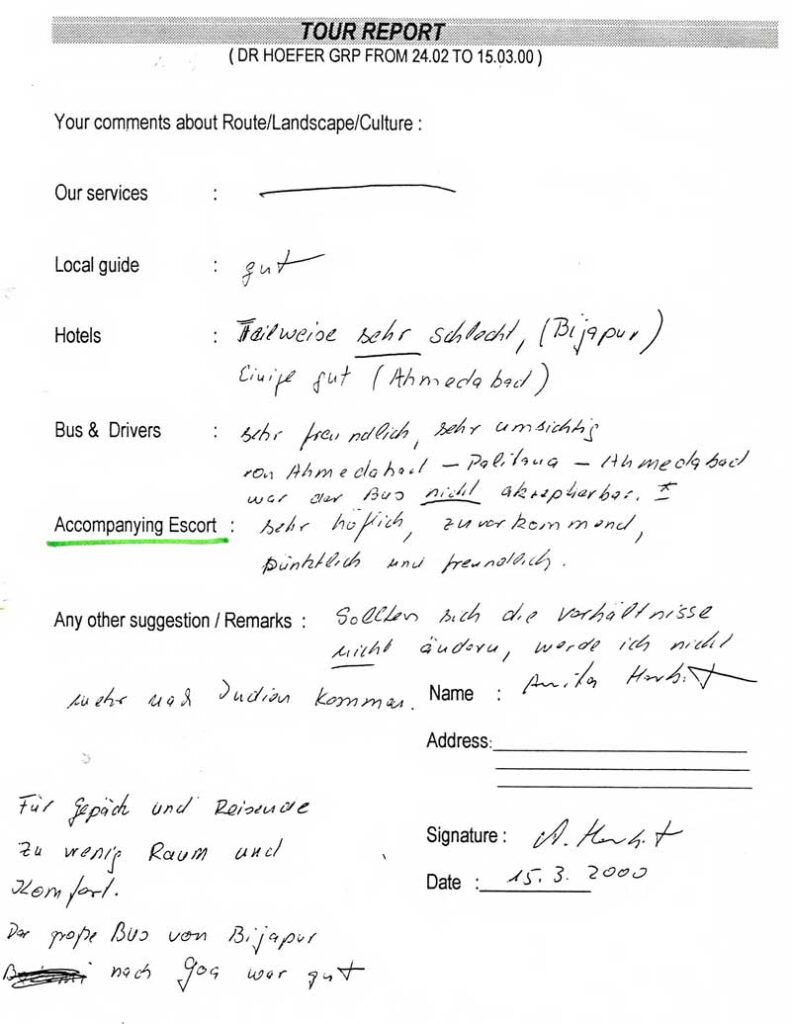 TOUR REPORT
( DR HOEFER GRP FROM 24.02 TO 15.03.00 )
Your comments about Route/Landscape/Culture :
Our services :
Local guide : gut
Hotels : Teilweise sehr schlecht, (Bijapur)
Einige gut (Ahmedabad)
Bus & Drivers : sehr freundlich, sehr umsichtig
von Ahmedabad – Palitana – Ahmedabad
war der Bus nicht akzeptierbar. *
Accompanying Escort : sehr höflich, zuvorkommend,
pünktlich und freundlich.
Any other suggestion / Remarks : Sollten sich die Verhältnisse
nicht ändern, werde ich nicht
mehr nach Indien kommen.
Name : Anita
Address:
Für Gepäck und Reisende
zu wenig Raum und
Komfort.
Signature : A.
Date : 15.3.2000
Der große Bus von Bijapur
nach Goa war gut